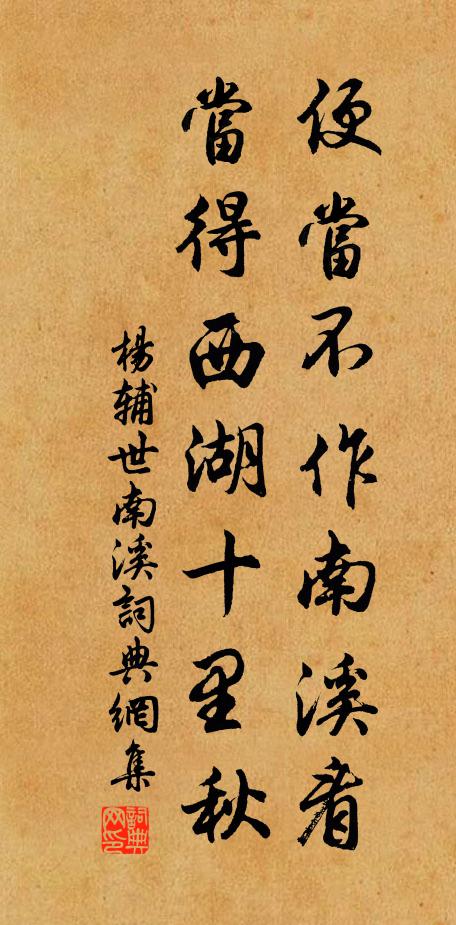 便當不作南溪看
當得西湖十里秋
楊辅世南溪詞典網集
詞典网印